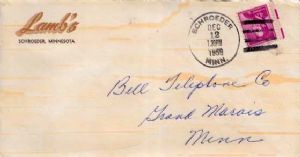 Lamb's
SCHROEDER, MINNESOTA
SCHROEDER
DEC
12
MINN.
Bell Telephone Co
Grand Marais
Minn